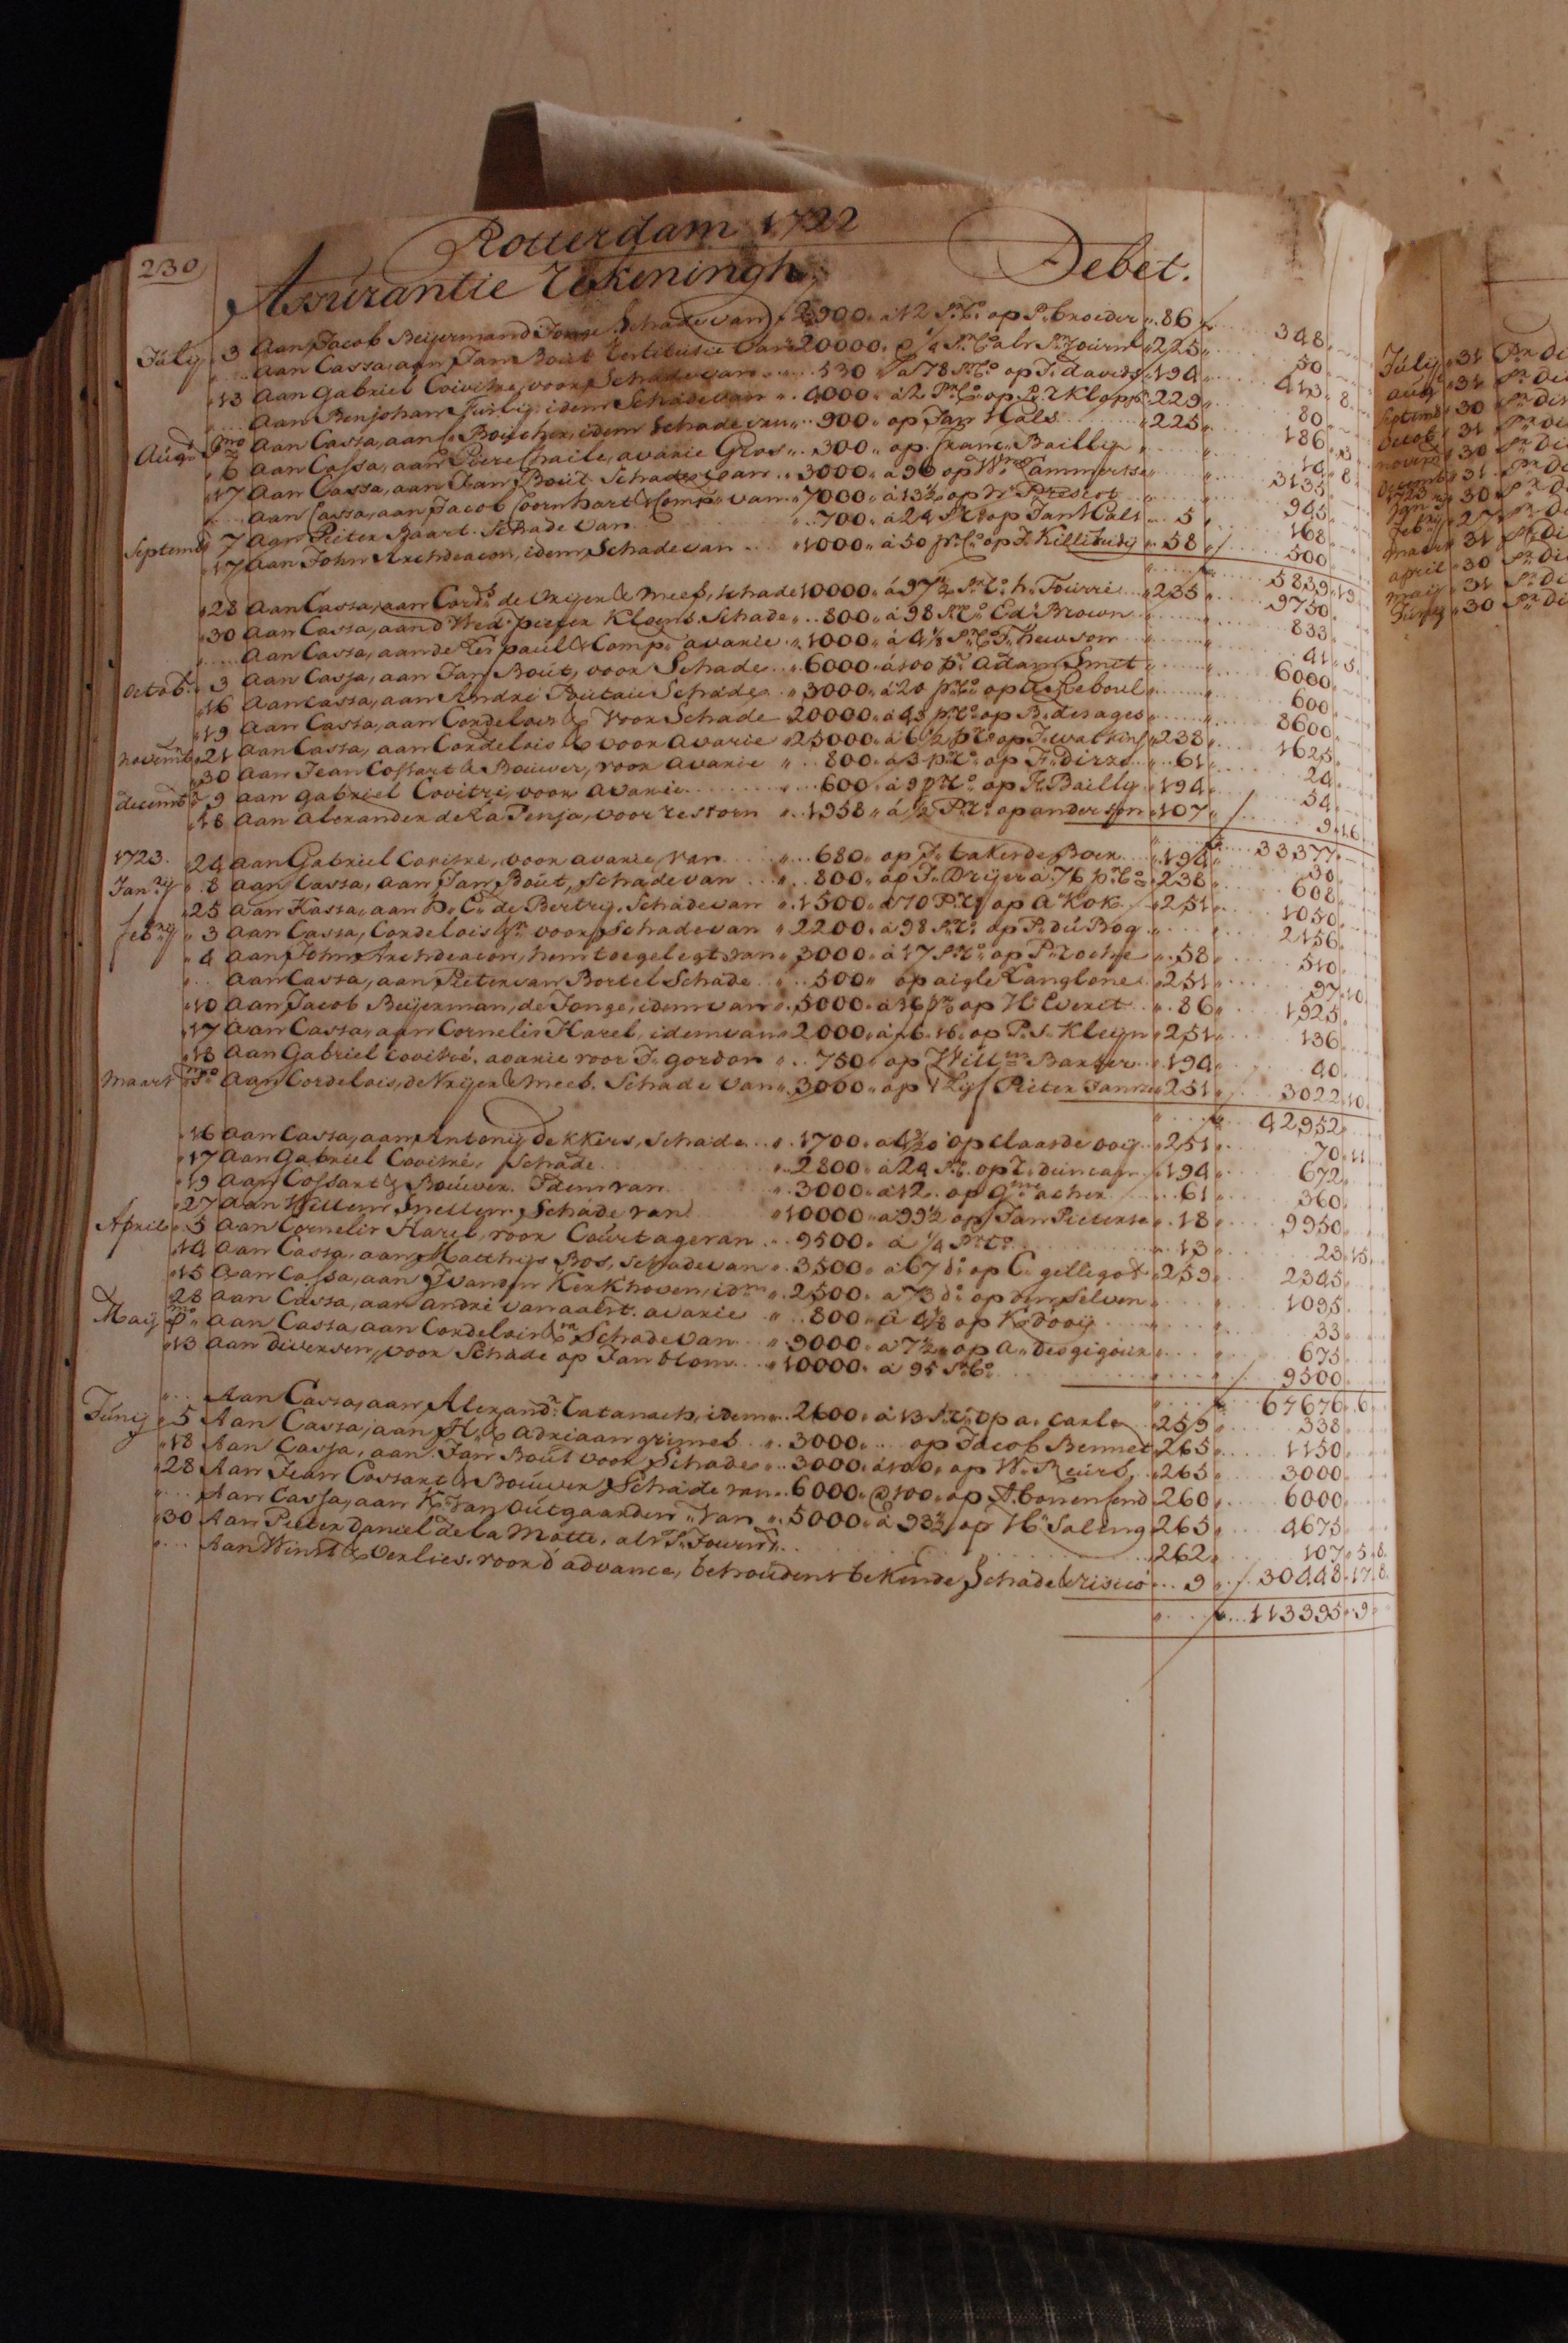 230
Rotterdam 1722
Assurantie Rekeningh Debet.
Julij 3 Aan Jacob Beijerman d Jonge Schade van 2900 a 12 P Co op P. broeder 86 348
Aan Cassa, aan Jan Bout 20000 ¼ 225 50
13 Aan Gabriel Coivitre, voor Schade van 530 a 78 P Co op J. davids 194 413 8
Aan Benjohan Furlij, idem Schade van 4000 a 2 P Co op 229 80
Aug Pmo Aan Cassa, aan Boucher, idem Schade van 900 op Jan Hals 225 186 13
6 Aan Cassa, aan Piere Chaile, avarie Gros 300 op franc. Baillij 8
17 Aan Cassa, aan Jan Bout Schade van 3000 a op Wm Lammertse 3135
Aan Cassa, aan Jacob Coornhart & Comp van 7000 a 13½ op Prescot 945
Septemb 7 Aan Pieter Baart Schade van 700 a 24 P Co op Jan Hals 5 168
17 Aan John Archdeacon, idem Schade van 1000 a 50 pr Co op J. Killibuij 58 500
5839 19
28 Aan Cassa, aan Cords de Vrijer & Mees, schade 10000 a 97½ P Co h. Fourrie 235 9750
30 Aan Cassa, aan d Wed pieter Kloens Schade 800 a 98 P Co Ed Brown 833
Aan Cassa, aan de paul & Comp avarie 1000 a 4⅛ P Co J. hewson 41 5
Octob 3 Aan Cassa, aan Jan Bout, voor Schade 6000 a 100 pr adam Smet 6000
16 Aan Cassa, aan Andre Boutau Schade 3000 a 20 pr Co op A Reboul 600
19 Aan Cassa, aan Cordelois & voor Schade 20000 a 43 pr Co op B. desages 8600
novemb 21 Aan Cassa, aan Cordelois & voor avarie 25000 a 6½ pr Co op J. watkins 238 1625
30 Aan Jean Cossart & Bouwer, voor avarie 800 a 3 pr Co op F. dirxe 61 24
decemb 9 Aan gabriel Covitre, voor avarie 600 a 9 pr Co op F. Bailly 194 54
18 Aan Alexander de la Penja, voor restorn 1958 a ½ P Co op anderson 107 9 16
33377
1723. 24 Aan Gabriel Covitre, voor avarie, van 680 op J. bakerde Boer 194 30
Janrij 8 Aan Cassa, aan Jan Bout, Schade van 800 op J. Drijer a 76 pr Co 238 608
25 Aan Kassa, aan P. C. de Bertrij, Schade van 1500 a 70 P Co op A Kok 251 1050
febrij 3 Aan Cassa, Cordelois & voor Schade van 2200 a 98 P Co op P. du Bog 2156
4 Aan John Archdeacon, hem toegelegt van 3000 a 17 P Co op P. roche 58 510
Aan Cassa, aan Pieter van Bortel Schade 500 op aigle Langlone 251 97 10
10 Aan Jacob Beijerman, de Jonge, idem van 5000 op H Everit 86 1925
17 Aan Cassa, aan Cornelis Harel, idem van 2000 a 6.16 op P. S. Kleijn 251 136
18 Aan Gabriel Covitré, avarie voor J. gordon 750 op Willm Barker 194 40
Maart Pmo Aan Cordelois, de Vrijer & Mees, Schade van 3000 op Pieter Jansz 251 3022 10
42952
16 Aan Cassa, aan Antonij Dekkers, Schade 1700 op Claas de ooij 251 70 11
17 Aan Gabriel Covitré, Schade 2800 a 24 P Co op duncan 194 672
19 Aan Cossart & Bouwer. Idem van 3000 a 12 op acher 61 360
27 Aan Willem Snellen, Schade van 10000 a 99½ op Jan Pieterse 18 9950
April 5 Aan Cornelis Harel, voor Courtage van 9500 a ¼ P Co 13 23 15
14 Aan Cassa, aan Matthijs Bos, Schade van 3500 a 67 do op C. gillegot 259 2345
15 Aan Cassa, aan J van der Kerkhoven, idm 2500 a 73 do op den selven 1095
28 Aan Cassa, aan andré van aalst avarie 800 a 4⅛ op K dooij 33
Maij Pmo Aan Cassa, aan Cordelois & Schade van 9000 a 7½ op a desgigoux 675
13 Aan diversen, voor Schade op Jan blom 10000 a 95 P Co 9500
67676 6
Aan Cassa, aan Alexandr Catanach, idem 2600 a 13 P Co op a. Carle 259 338
Junij 5 Aan Cassa, aan H. & Adriaan grimes 3000 op Jacob Bennet 265 1150
18 Aan Cassa, aan Jan Bout voor Schade 3000 a 100 op W. Reurs 265 3000
28 Aan Jean Cossart & Bouwer Schade van 6000 a 100 op A. 260 6000
Aan Cassa, aan K. van Outgaarden van 5000 a 93½ op H. Saling 265 4675
30 Aan Pieter Daniel de la Motte, als P. Journ 262 107 5 8
Aan Winst & Verlies voor d advance, behoudens bekende Schade & risico 9 30448 17 8
113395 9
Julij 31 Pr Di
aug 31 Pr Di
Septemb 30 Pr Di
octob 31 Pr Di
novem 30 Pr Di
decemb 31 Pr Di
1723
Jan 30 Pr Di
feb 27 Pr Di
maart 31 Pr Di
april 30 Pr Di
maij 31 Pr Di
Junij 30 Pr Di